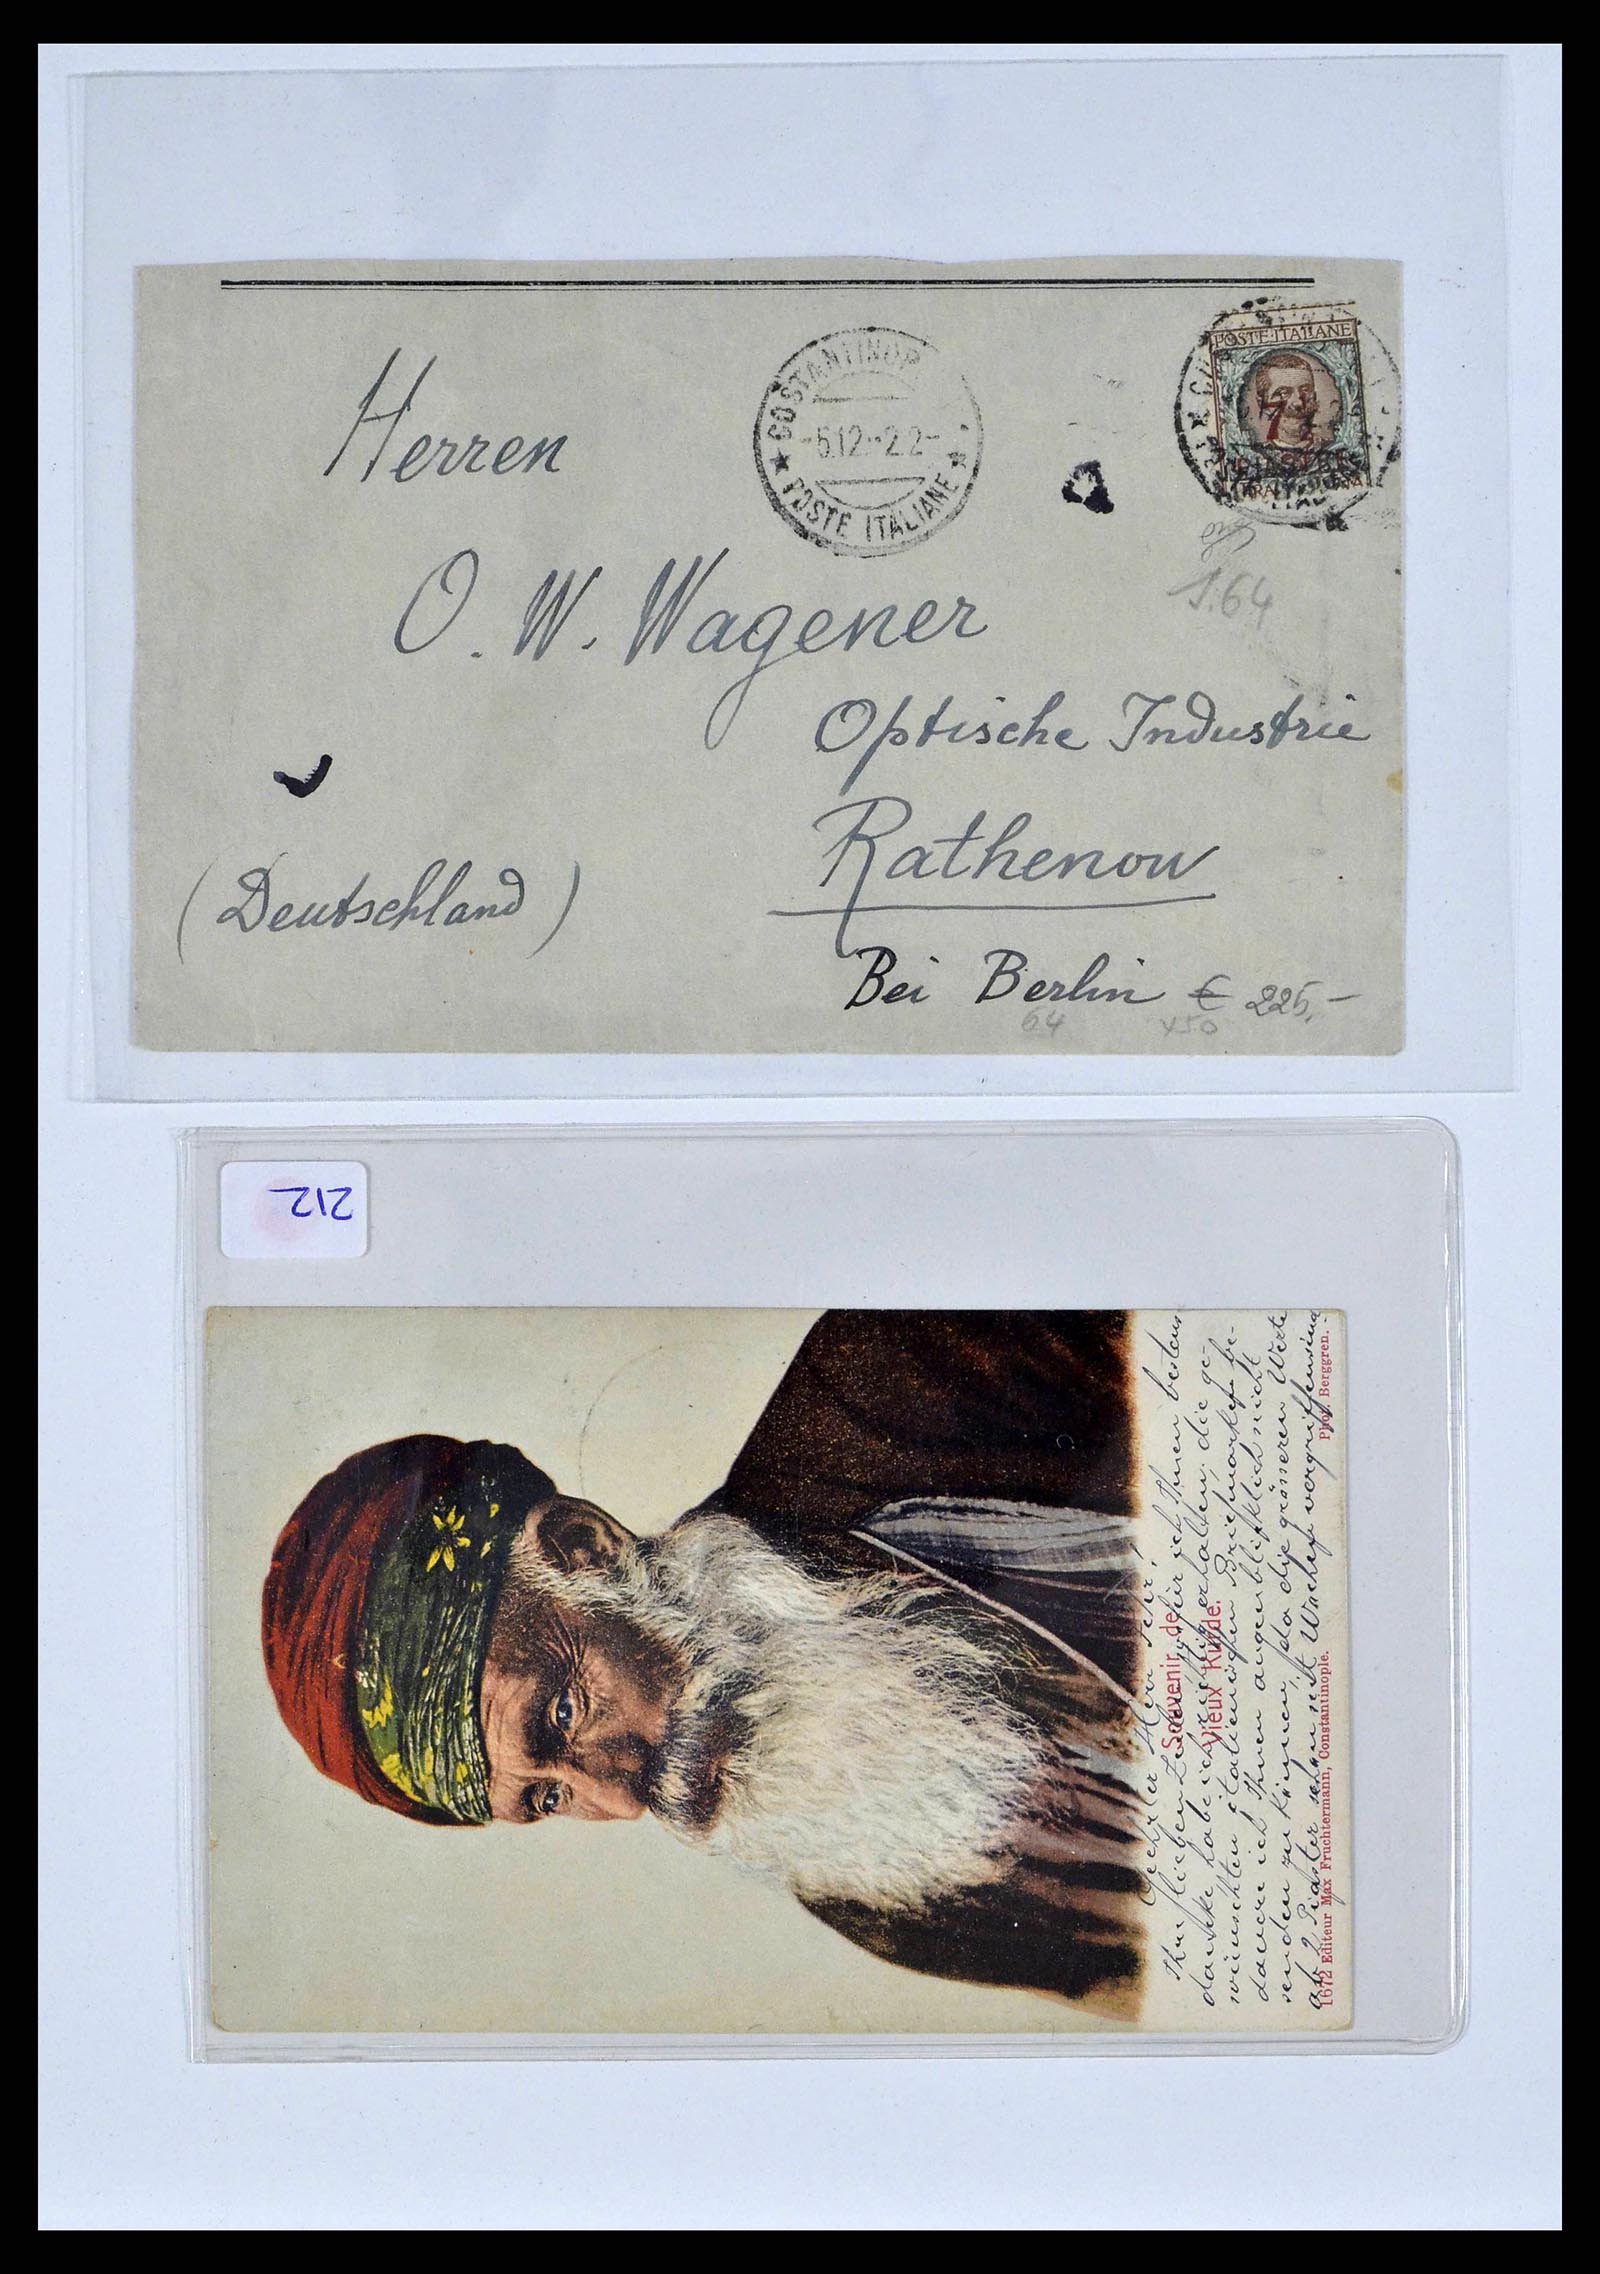 POSTE·ITALIANE
7½
PIASTRE
COSTANTINOP
-6.12.-22-
★ POSTE ITALIANE ★
Herren
O. W. Wagener
Optische Industrie
Rathenow
(Deutschland)
Bei Berlin
64
€ 225,-
64
x50
212
Souvenir de
Vieux Kurde.
Geehrter Herr
Ihr lieben ich Ihnen bestens
danke habe ich richtig erhalten, die ge-
wünschten italienischen Briefmarken be-
dauere ich Ihnen augenblicklich nicht
senden zu können, da die grösseren Werte
ab 2 Piaster schon seit Wochen vergriffen sind
1672 Editeur Max Fruchtermann, Constantinople.
Phot. Berggren.